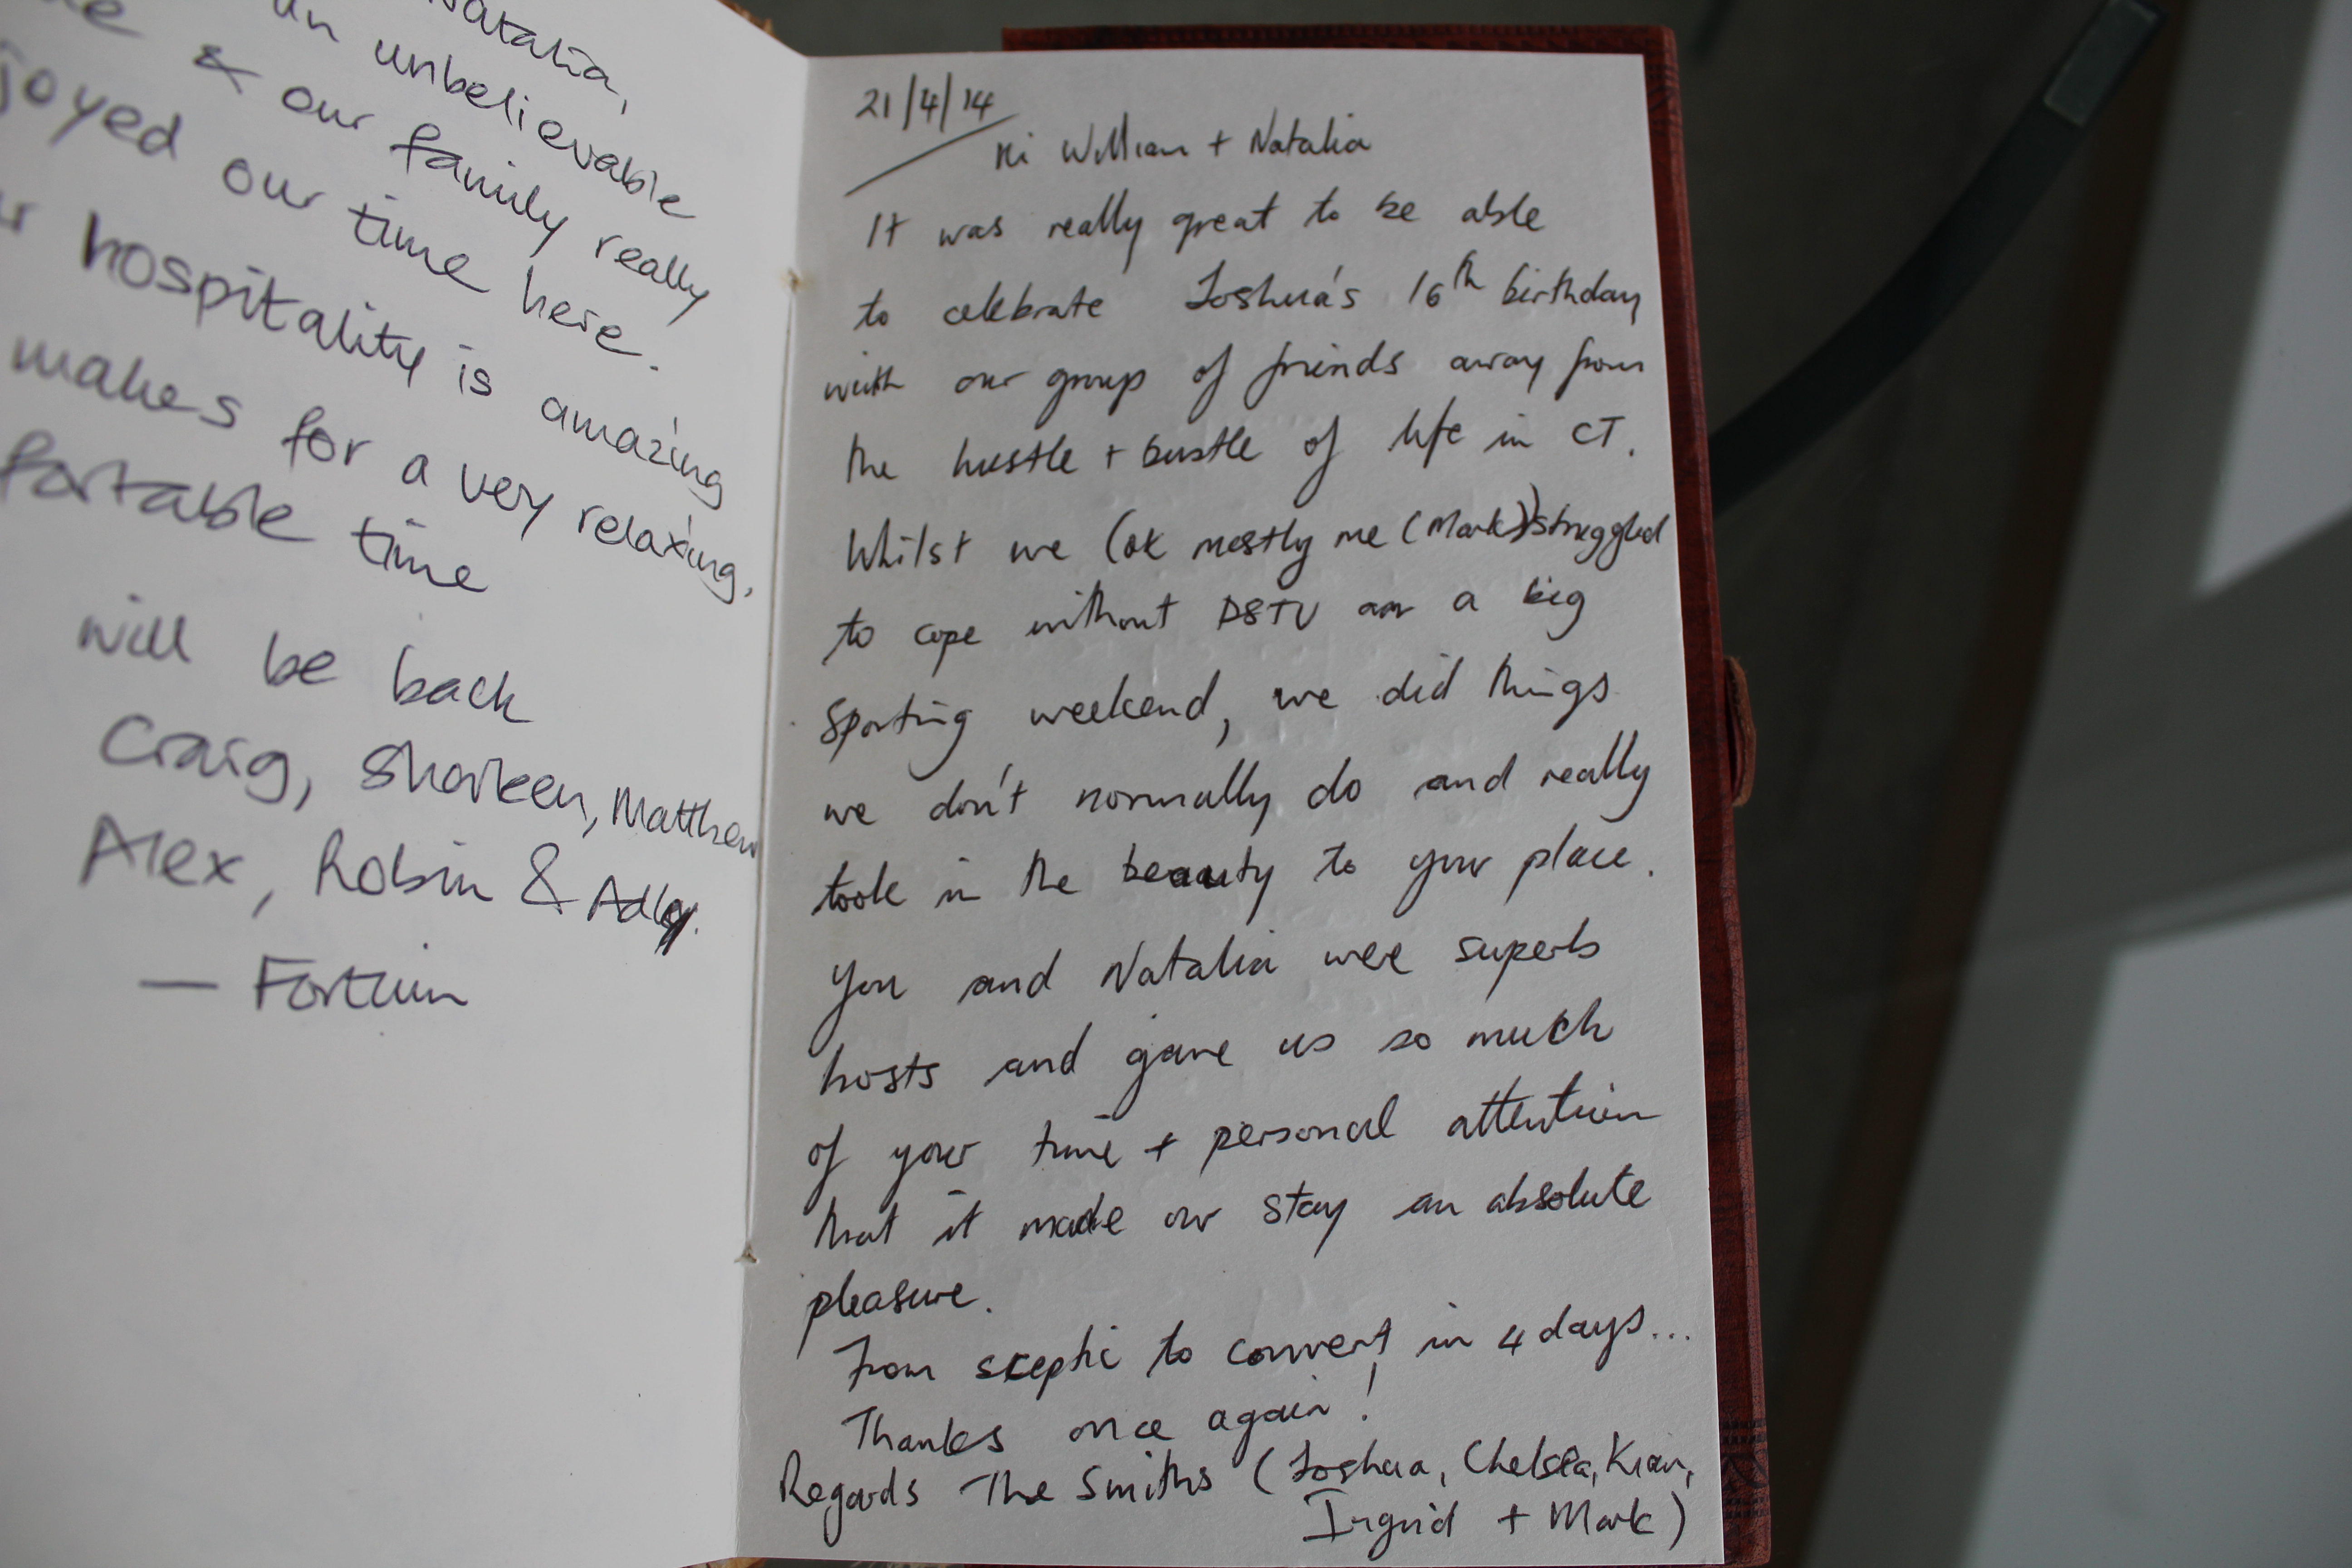 Natalia,
an unbelievable
& our family really
joyed our time here.
hospitality is amazing
makes for a very relaxing,
fortable time
will be back
Craig, Sharleen, Matthew
Alex, Robin &
— Fortuin
21/4/14
Hi William + Natalia
It was really great to be able
to celebrate Joshua's 16th birthday
with our group of friends away from
the hustle + bustle of life in CT.
Whilst we (ok mostly me (Mark)) struggled
to cope without DSTV on a big
sporting weekend, we did things
we don't normally do and really
took in the beauty to your place.
You and Natalia were superb
hosts and gave us so much
of your time + personal attention
that it made our stay an absolute
pleasure.
From sceptic to convert in 4 days...
Thanks once again!
Regards The Smiths (Joshua, Chelsea, Kian,
Ingrid + Mark)